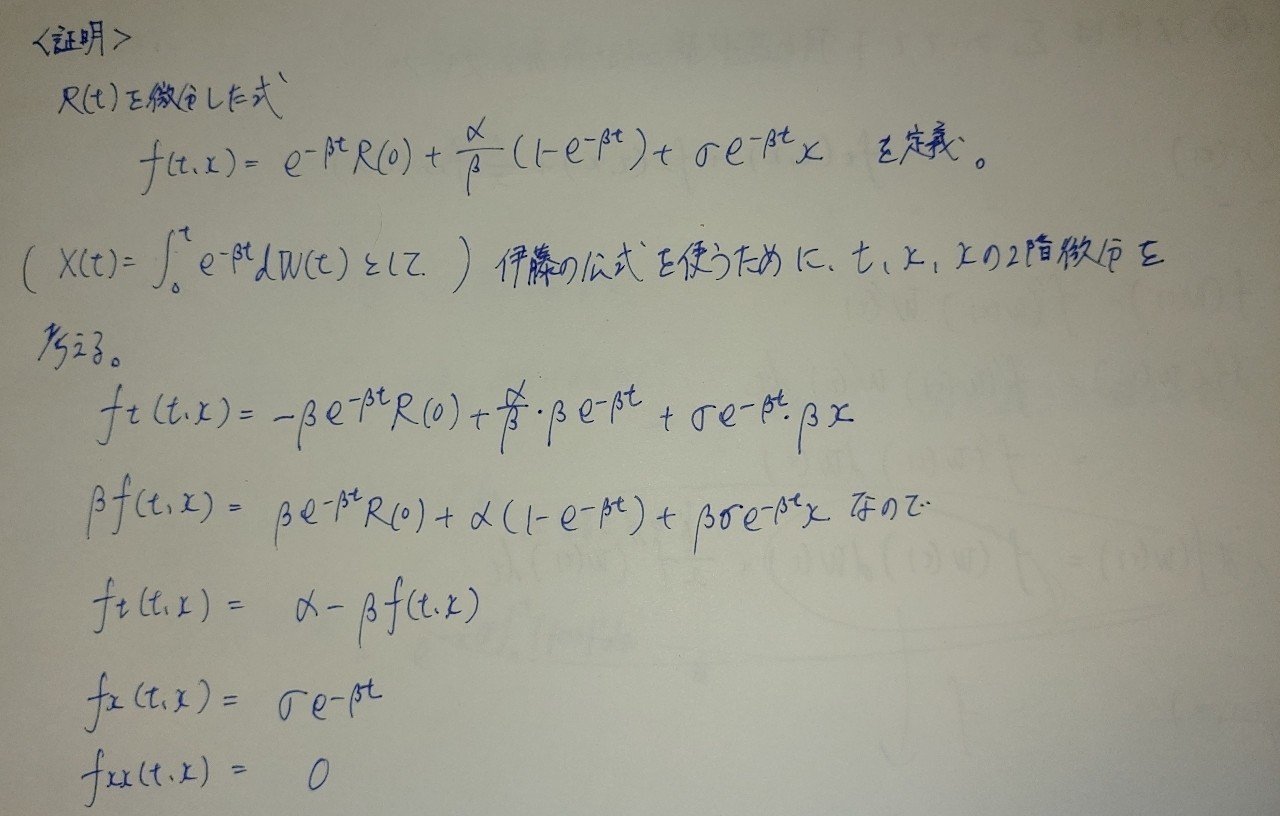 <証明>
R(t)を微分した式
f(t,x) = e^{-βt}R(0) + \frac{α}{β}(1-e^{-βt}) + σe^{-βt}x を定義。
( X(t) = ∫_0^t e^{-βt}dW(t) として ) 伊藤の公式を使うために、t, x, xの2階微分を
考える。
f_t(t,x) = -βe^{-βt}R(0) + \frac{α}{β}・βe^{-βt} + σe^{-βt}・βx
βf(t,x) = βe^{-βt}R(0) + α(1-e^{-βt}) + βσe^{-βt}x なので
f_t(t,x) = α - βf(t,x)
f_x(t,x) = σe^{-βt}
f_{xx}(t,x) = 0